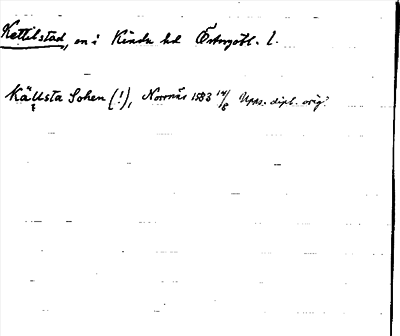 Kettilstad, sn i Kinda hd Östergötl. l.
Källsta Sohen (!), Norrnäs 1583 14/8 Upps. dipl. orig.